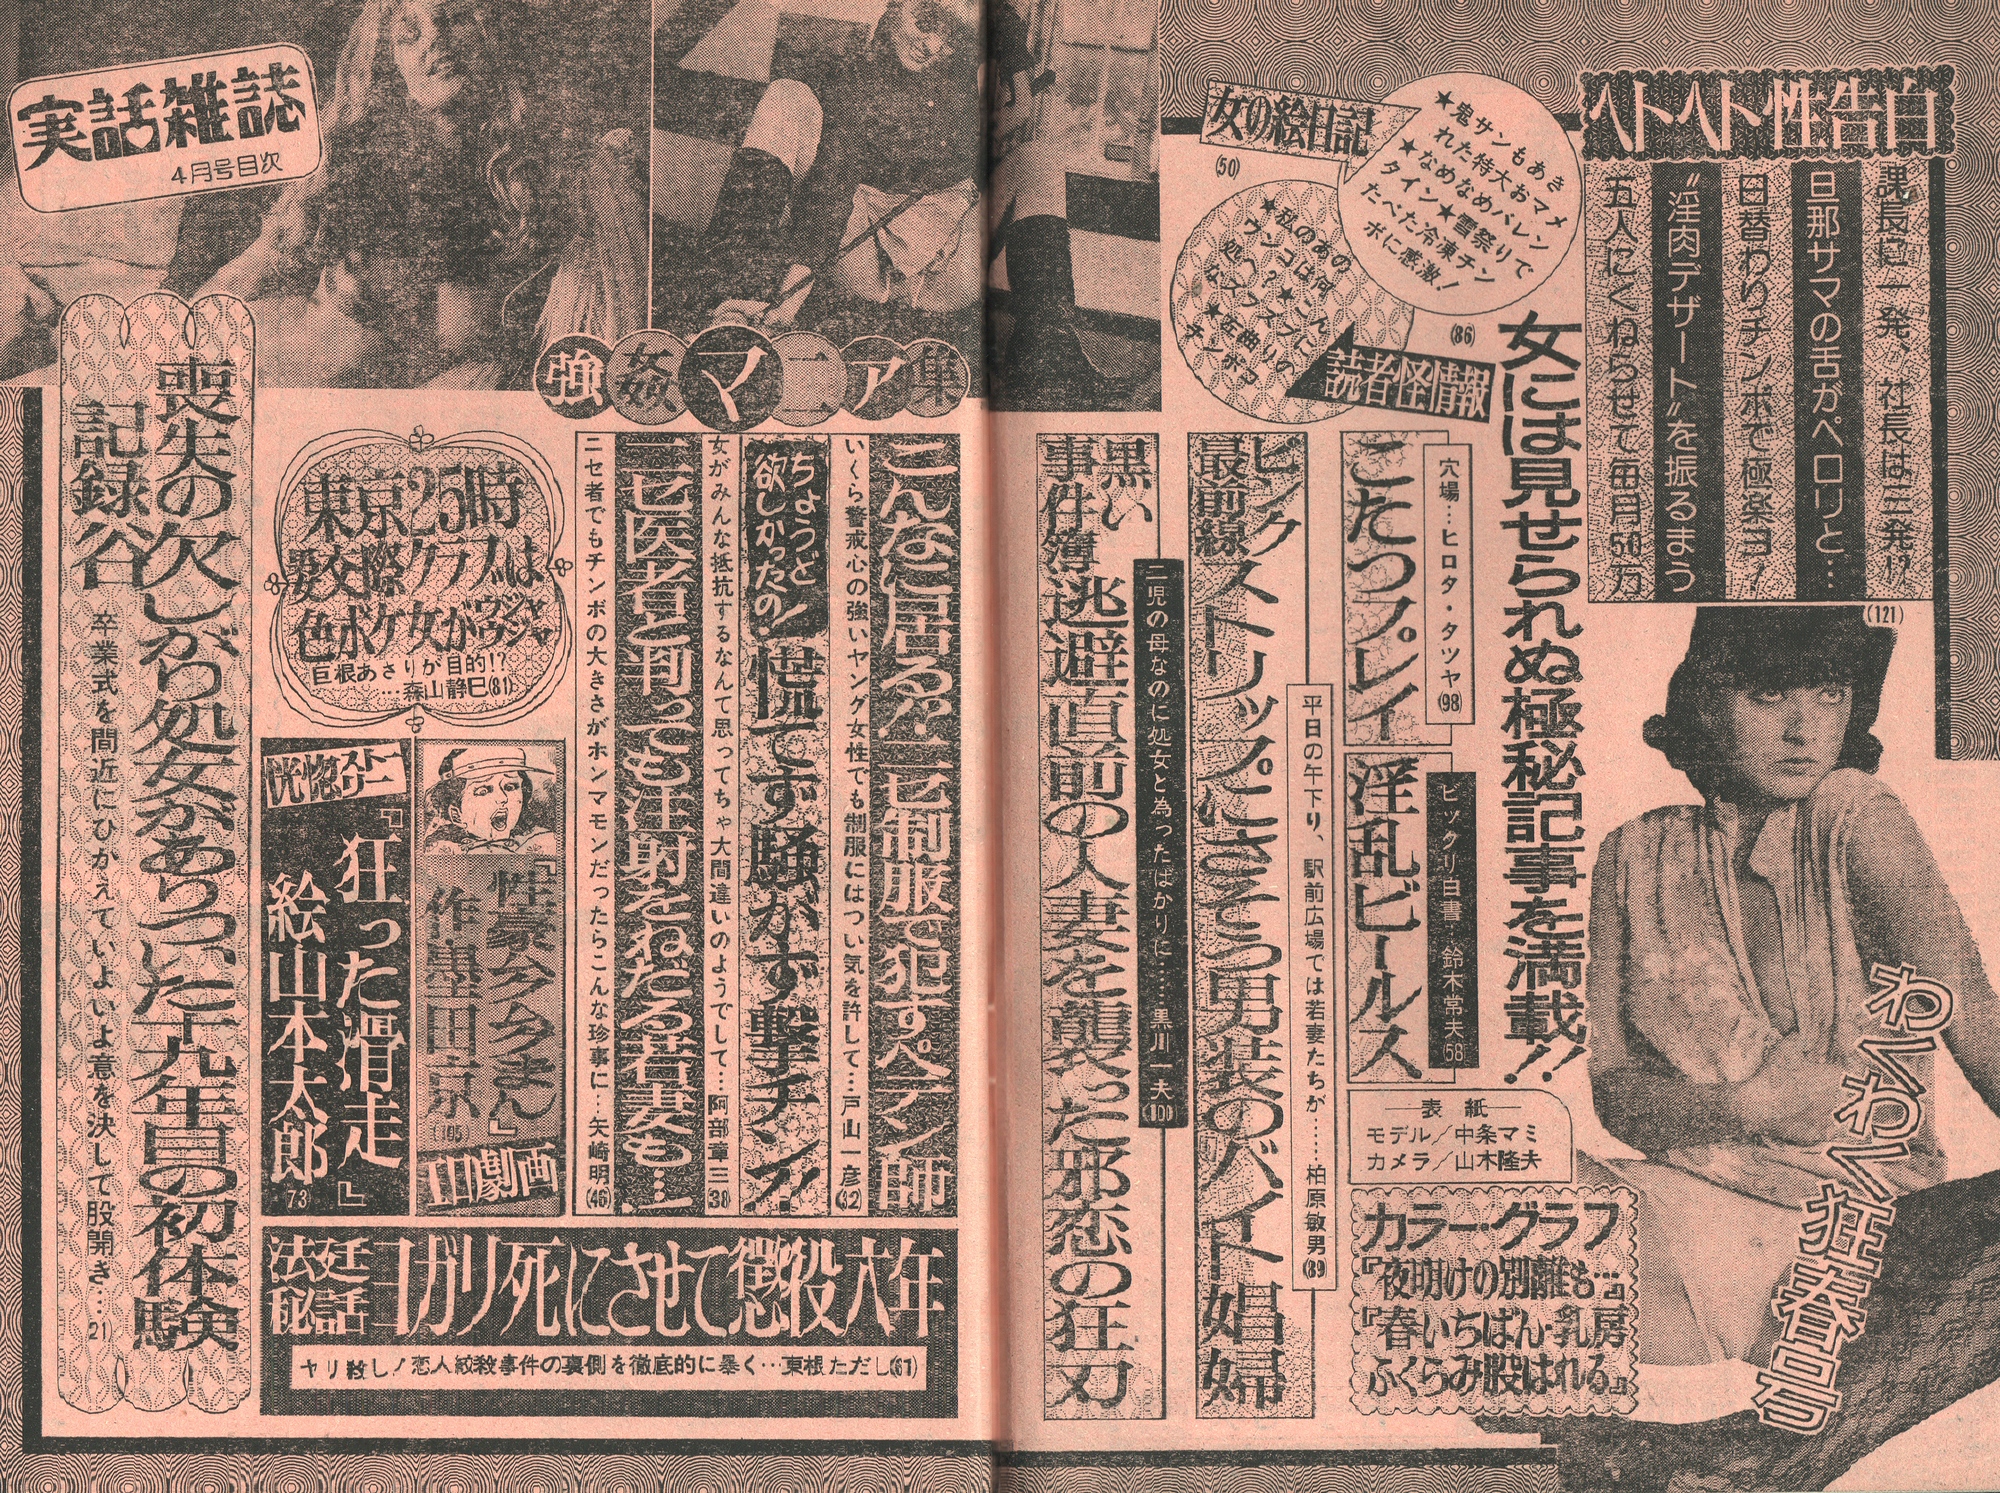 ヘトヘト性告白
課長に一発、社長は三発!?
旦那サマの舌がペロリと…
日替わりチンボで極楽ヨ!
〝淫肉デザート〟を振るまう
五人にくねらせて毎月50万
(121)
女の絵日記
(50)
★鬼サンもあき
れた特大おマメ
★なめなめバレン
タイン★雪祭りで
たべた冷凍チン
ボに感激!
★私のあの
ウンコは何
処へ?★こんに
なズブズブの
★左曲りの
チンボコ
読者怪情報
(86)
女には見せられぬ極秘記事を満載!!
わくわく狂春号
穴場…ヒロタ・タツヤ(98)
こたつプレイ
ビックリ白書…鈴木常夫(58)
淫乱ビールス
―表 紙―
モデル／中条マミ
カメラ／山木隆夫
カラー・グラフ
『夜明けの別離も…』
『春いちばん・乳房
ふくらみ股はれる』
平日の午下り、駅前広場では若妻たちが……柏原敏男(89)
ピンク
最前線
ストリップにさそう男装のバイト娼婦
二児の母なのに処女と為ったばかりに……黒川一夫(100)
黒い
事件簿
逃避直前の人妻を襲った邪恋の狂刃
強姦マニア集
こんなに居る?ニセ制服で犯すペテン師
いくら警戒心の強いヤング女性でも制服にはつい気を許して…戸山一彦(32)
ちょうど!
欲しかったの!
慌てず騒がず撃チン!!
女がみんな抵抗するなんて思ってちゃ大間違いのようでして…阿部章三(38)
ニセ医者と判っても注射をねだる若妻も…
ニセ者でもチンボの大きさがホンマモンだったらこんな珍事に…矢崎明(46)
東京25時
男女交際クラブは
色ボケ女がウジャウジャ
巨根あさりが目的!?
…森山静巳(81)
『性豪今今まん』
作・墨田京(105)
エロ劇画
恍惚ストーリー
『狂った滑走』
絵山本太郎(73)
法廷
秘話
ヨガリ死にさせて懲役六年
ヤリ殺し!恋人絞殺事件の裏側を徹底的に暴く…東根ただし(61)
実話雑誌
4月号目次
喪失の次しがり処女がありついた十九年目の初体験
記録谷
卒業式を間近にひかえていよいよ意を決して股開き…(21)